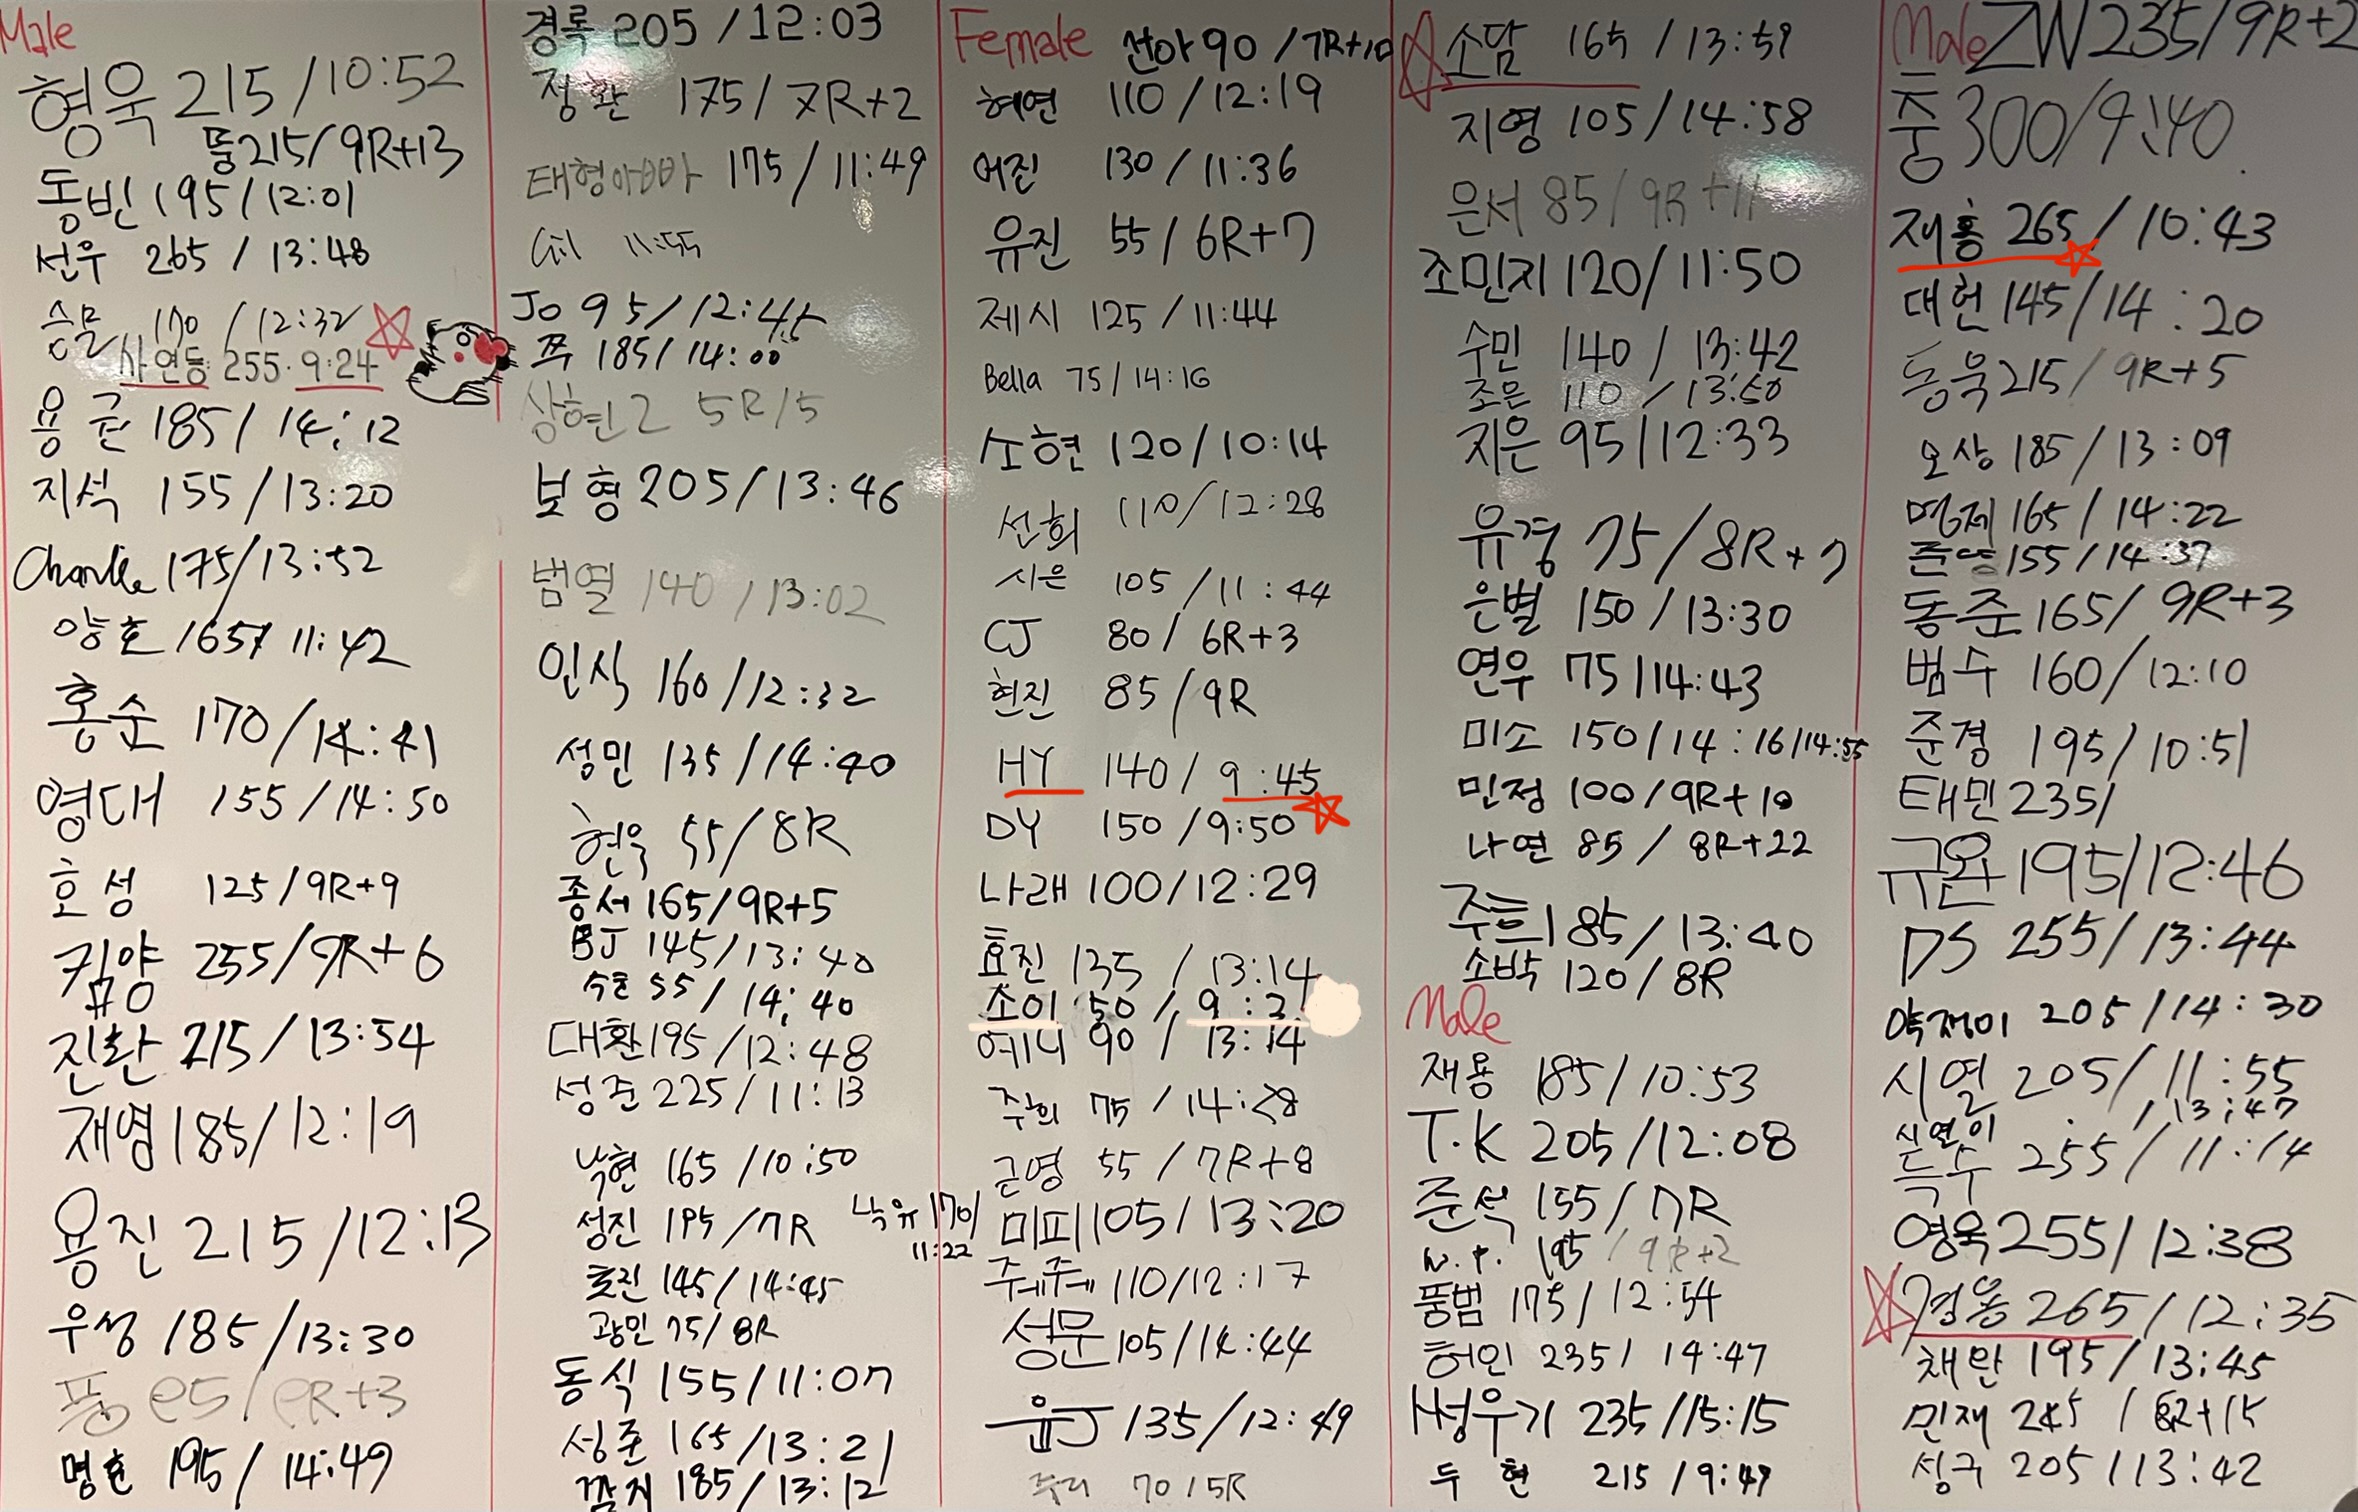 Male
형욱 215/10:52
뚱215/9R+13
동빈 195/12:01
선우 265 / 13:48
승모 170 /12:32
사연등 255. 9:24
용균 185/ 14:12
지석 155/13:20
Charlie 175/13:52
양호 165/ 11:42
홍순 170/14:41
영대 155/14:50
호성 125/9R+9
킴얌 255/9R+6
진환 215/13:54
재영 185/12:19
용진 215/12:13
우성 185/13:30
명호 195/ 14:49
경록 205 /12:03
정환 175/ 7R+2
태형아빠 175/11:49
Gil 11:55
Jo 95/12:45
쯔 185/14:00
상현2 5R/5
보형 205/13:46
범열 140 /13:02
인식 160/12:32
성민 135/14:40
현욱 55/8R
종서 165/9R+5
BJ 145/13:40
수호 55/ 14:40
대환 195/12:48
성준 225/11:13
낙현 165 /10:50
성진 195 /7R
낙유 170/
11:22
효진 145/14:45
광민 75/8R
동식 155/11:07
성준 165/13:21
깜지 185/13:12
Female 선아 90 /7R+10
혜연 110/12:19
어진 130/11:36
유진 55/6R+7
제시 125/11:44
Bella 75/14:16
소현 120/10:14
선희 110/12:28
시은 105/11:44
CJ 80/ 6R+3
현진 85/9R
HY 140/ 9:45
DY 150 /9:50
나래 100/12:29
효진 135 /13:14
소이 50 / 9:3
예니 90 / 13:14
주희 75 /14:28
근영 55 /7R+8
미피 105/13:20
쥬쥬 110/12:17
성문 105/14:44
윤J 135/12:49
주리 70/5R
소담 165 /13:59
지영 105/14:58
은서 85/9R+11
조민지 120/11:50
수민 140/ 13:42
조은 110 /13:50
지은 95/12:33
유경 75/8R+7
은별 150/13:30
연우 75/14:43
미소 150/14:16/14:55
민정 100/9R+10
나연 85/ 8R+22
주흔 185/13:40
소박 120/8R
Male
재용 185/10:53
T.K 205/12:08
준석 155/7R
N.P. 195/9R+2
뚱범 175/12:54
허인 235/ 14:47
H성우기 235/15:15
두현 215 /9:47
Male ZW 235/9R+2
중 300/9:40
재홍 265/10:43
대헌 145/14:20
동욱 215/9R+5
오상 185/13:09
명제 165/14:22
155/14:37
동준 165/ 9R+3
범수 160/12:10
준경 195/10:51
태민 235/
규온 195/12:46
DS 255/13:44
약정이 205/14:30
시열 205/11:55
신연이 /13:47
득수 255/11:14
영욱 255/12:38
경용 265/12:35
채완 195/13:45
민재 245 / 8R+15
성구 205/13:42